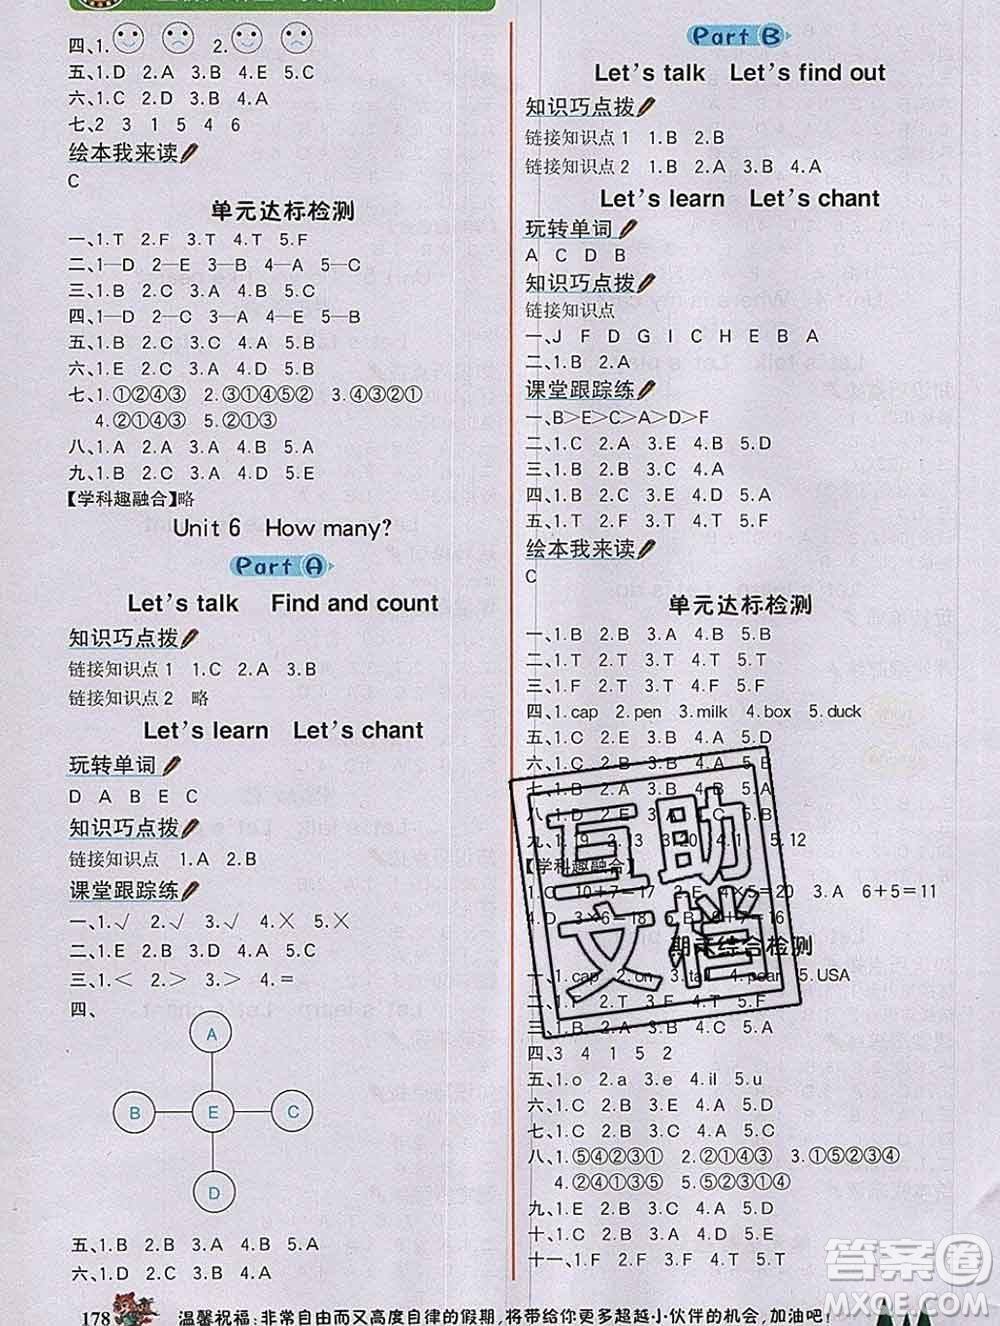 四、1. 2.
五、1.D 2.A 3.B 4.E 5.C
六、1.C 2.D 3.B 4.A
七、2 3 1 5 4 6
绘本我来读
C
单元达标检测
一、1.T 2.F 3.T 4.T 5.F
二、1—D 2—E 3—B 4—A 5—C
四、1—D 2—C 3—A 4—E 5—B
五、1.B 2.C 3.B 4.C 5.A
六、1.E 2.D 3.B 4.C 5.A
七、1.①②④③ 2.③①④⑤② 3.④③②①
4.②①④③ 5.④②①③
八、1.A 2.A 3.A 4.C 5.A
九、1.B 2.A 3.C 4.D 5.E
【学科趣融合】略
Unit 6 How many?
Part A
Let's talk Find and count
知识巧点拨
链接知识点1 1.C 2.A 3.B
链接知识点2 略
Let's learn Let's chant
玩转单词
D A B E C
知识巧点拨
链接知识点 1.A 2.B
课堂跟踪练
一、1.√ 2.√ 3.√ 4.× 5.×
二、1.E 2.B 3.D 4.C 5.A
三、1.< 2.> 3.> 4.=
四、
A
B E C
D
五、1.B 2.B 3.A 4.C 5.B
六、1.D 2.B 3.C 4.A
178 温馨祝福:非常自由而又高度自律的假期,将带给你更多超越小伙伴的机会,加油吧!
Part B
Let's talk Let's find out
知识巧点拨
链接知识点1 1.B 2.B
链接知识点2 1.B 2.A 3.B 4.A
Let's learn Let's chant
玩转单词
A C D B
知识巧点拨
链接知识点
一、J F D G I C H E B A
二、1.B 2.A
课堂跟踪练
一、B>E>C>A>D>F
二、1.C 2.A 3.E 4.B 5.D
三、1.B 2.B 3.C 4.A
四、1.B 2.C 3.D 4.E 5.A
五、1.T 2.F 3.F 4.T 5.F
绘本我来读
C
单元达标检测
一、1.B 2.B 3.A 4.B 5.B
二、1.T 2.T 3.F 4.T 5.T
三、1.F 2.T 3.T 4.F 5.F
四、1.cap 2.pen 3.milk 4.box 5.duck
五、1.C 2.E 3.B 4.D 5.A
九、1.19 2.13 3.20 4.11 5.12
【学科趣融合】
1.C 10+7=17 2.E 4×5=20 3.A 6+5=11
4.D 3×6=18 5.B 9+7=16
期末综合检测
一、1.cap 2.on 3.tall 4.pear 5.USA
二、1.F 2.T 3.F 4.T 5.F
三、1.B 2.D 3.E 4.C 5.A
四、3 4 1 5 2
五、1.o 2.a 3.e 4.il 5.u
六、1.C 2.B 3.E 4.A 5.D
七、1.C 2.B 3.B 4.A 5.C
八、1.⑤④②③① 2.②①③④ 3.①⑤②③④
4.②①④③⑤ 5.④②③①
九、1.E 2.B 3.A 4.C 5.D
十、1.C 2.D 3.B 4.E 5.A
十一、1.F 2.F 3.F 4.T 5.T
互助
文档
答案圈
MXQE.COM